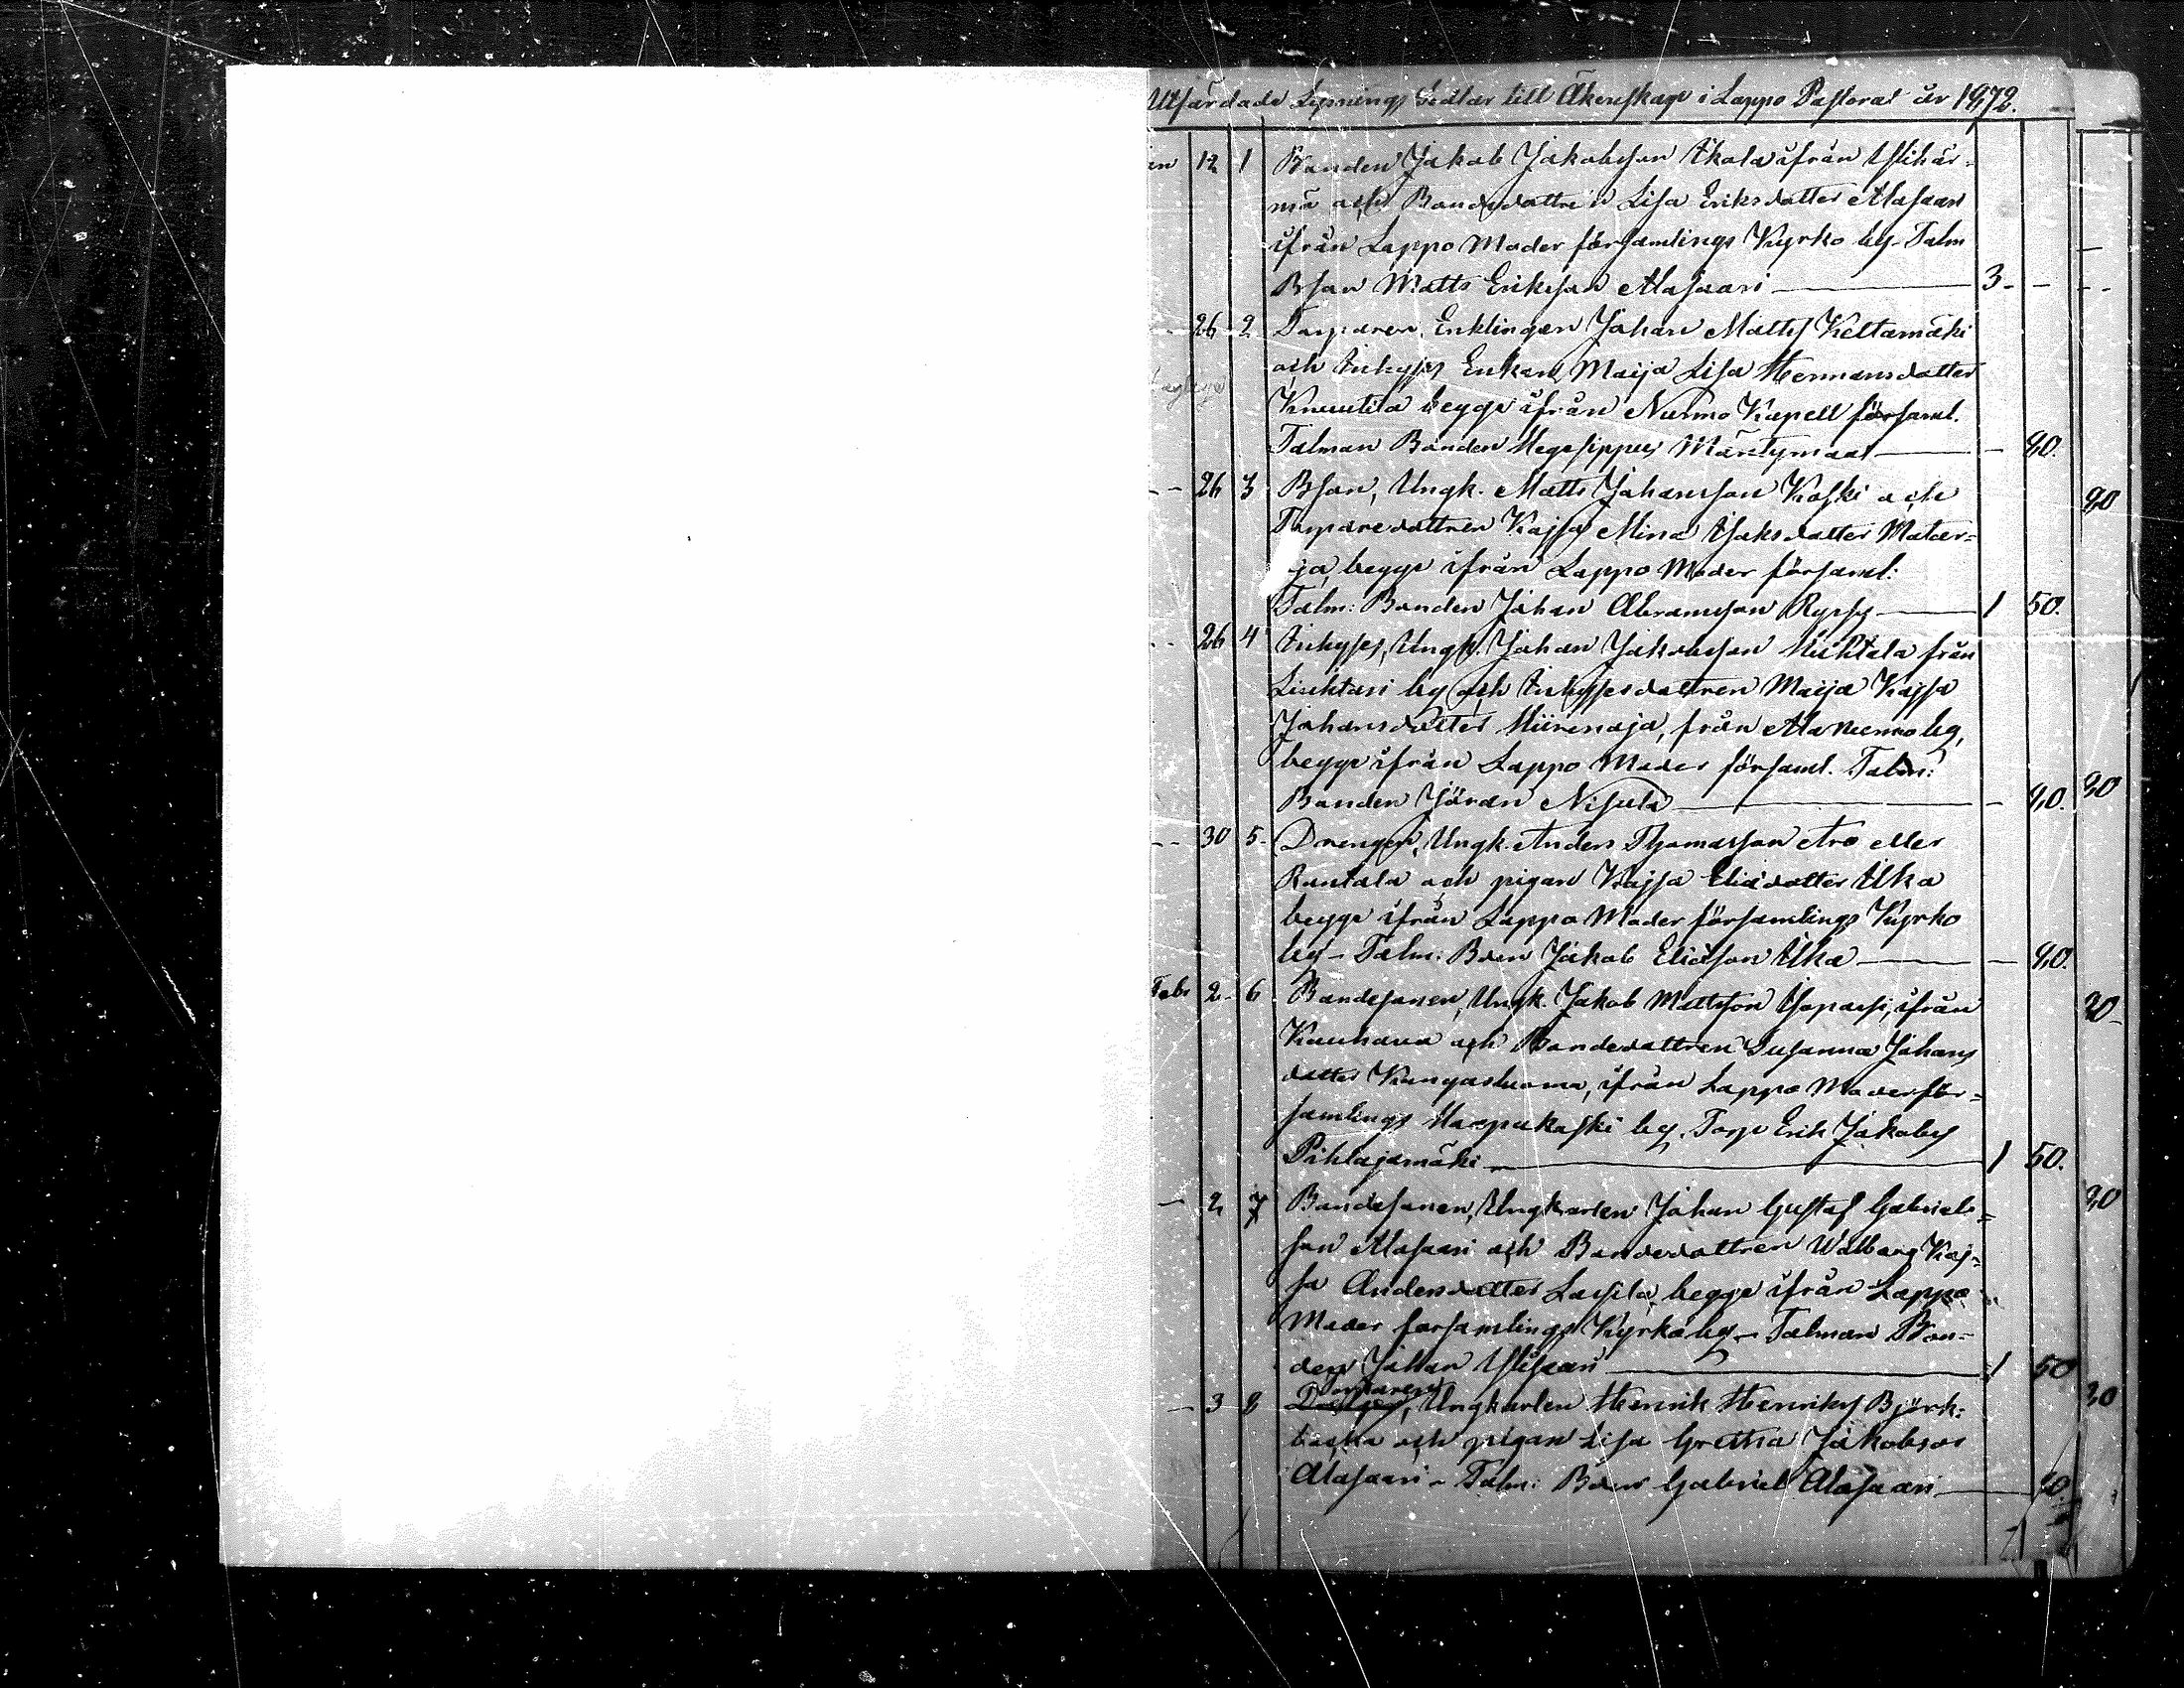 Utfärdade Lysnings Sedlar till Äkenskap i Lappo Pastorat år 1872.
12 1 Bonden Jakob Jakobsson Ikola ifrån Ylihär-
mä och Bondedottren Lisa Eriksdotter Alasaari
ifrån Lappo Moder församlings Kyrko by - Talm
Bson Matts Eriksson Alasaari 3 - -
26 2 Torparen, Enklingen Johan Matts Keltamäki
och Inhyses Enkan Maija Lisa Hermansdotter
Knuutila begge ifrån Nurmo Kapell församl.
Talman Bonden Hegesippus Mäntymaa - 80.
- - 26 3 Bson, Ungk. Matts Johansson Koski och
Torparedottren Kajsa Mina Isaksdotter
begge ifrån Lappo Moder församl:
Talm: Bonden Johan Abramsson 1 50.
- - 26 4 Inhyses, Ungk. Johan Jakobsson Huhtala från
Liuhtari by och Inhysesdottren Maija Kajsa
Johansdotter från Ala Nurmo by,
begge ifrån Lappo Moder församl. Talm:
Bonden Jöran Nisula - 80.
- - 30 5 - Drengen, Ungk. Anders Thomasson Aro eller
Rantala och pigan Kajsa Eliædotter Ilka
begge ifrån Lappo Moder församlings Kyrko
by - Talm: Bden Jakob Eliasson Ilka - 80.
Febr 2 - 6 Bondesonen, Ungk. Jakob Mattsson ifrån
Kauhava och Bondedottren Susanna Johans
dotter Kangasluoma, ifrån Lappo Moderför-
samlings Haapakoski by. Torp Erik Jakobs
Pihlajamäki 1 50.
- 2 7 Bondesonen, Ungkarlen Johan Gustaf Gabriels-
son Alasaari och Bondedottren Walborg Kaj-
sa Andersdotter Lassila, begge ifrån Lappo
Moder församlings Kyrko by - Talman Bon-
den Johan Ylisaari 1 50
Torparen
- 3 8 Drengen, Ungkarlen Henrik Henriks Björk-
backa och pigan Lisa Gretha Jakobsdr
Alasaari - Talm: Bden Gabriel Alasaari 80